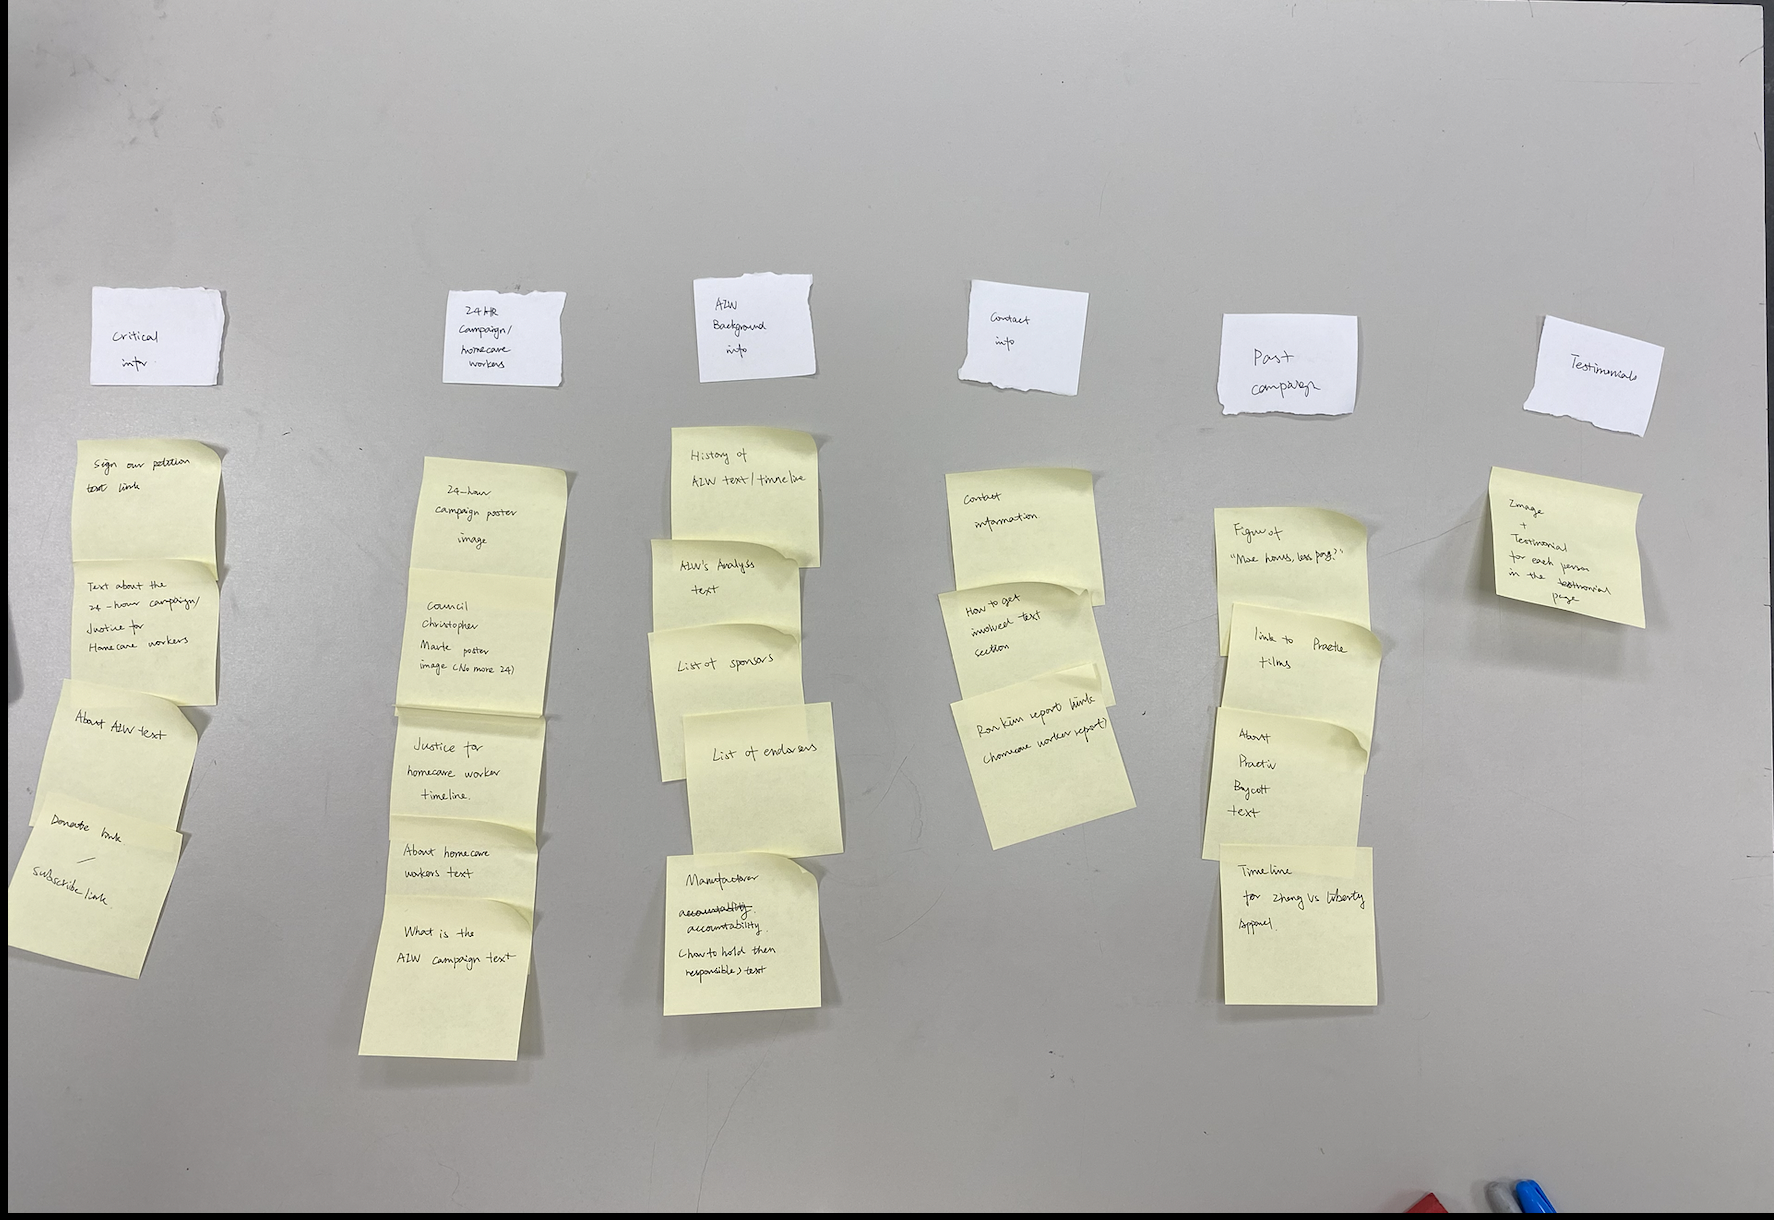 Critical
info
Sign our petition
link
Text about the
24-hour campaign/
Justice for
Homecare workers
About AIW text
Donate link
/
Subscribe link
24 HR
Campaign/
homecare
workers
24-hour
campaign poster
image
Council
Christopher
Marte poster
image (No more 24)
Justice for
homecare worker
timeline.
About homecare
workers text
What is the
AIW campaign text
AIW
Background
info
History of
AIW text/timeline
AIW's Analysis
text
List of sponsors
List of endorsers
Manufacturer
accountability.
accountability.
(how to hold them
responsible) text
Contact
info
Contact
information
How to get
involved text
section
Ron Kim report link
(homecare worker report)
Past
campaign
Figure of
"More hours, less pay?"
link to
films
About
Boycott
text
Timeline
for Zheng vs Liberty
Apparel.
Testimonials
Image
+
Testimonial
for each person
in the testimonial
page